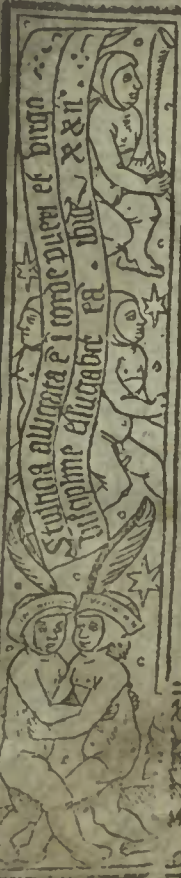 Stultitia alligata ē ī corde pueri et virga
discipline effugabit ea